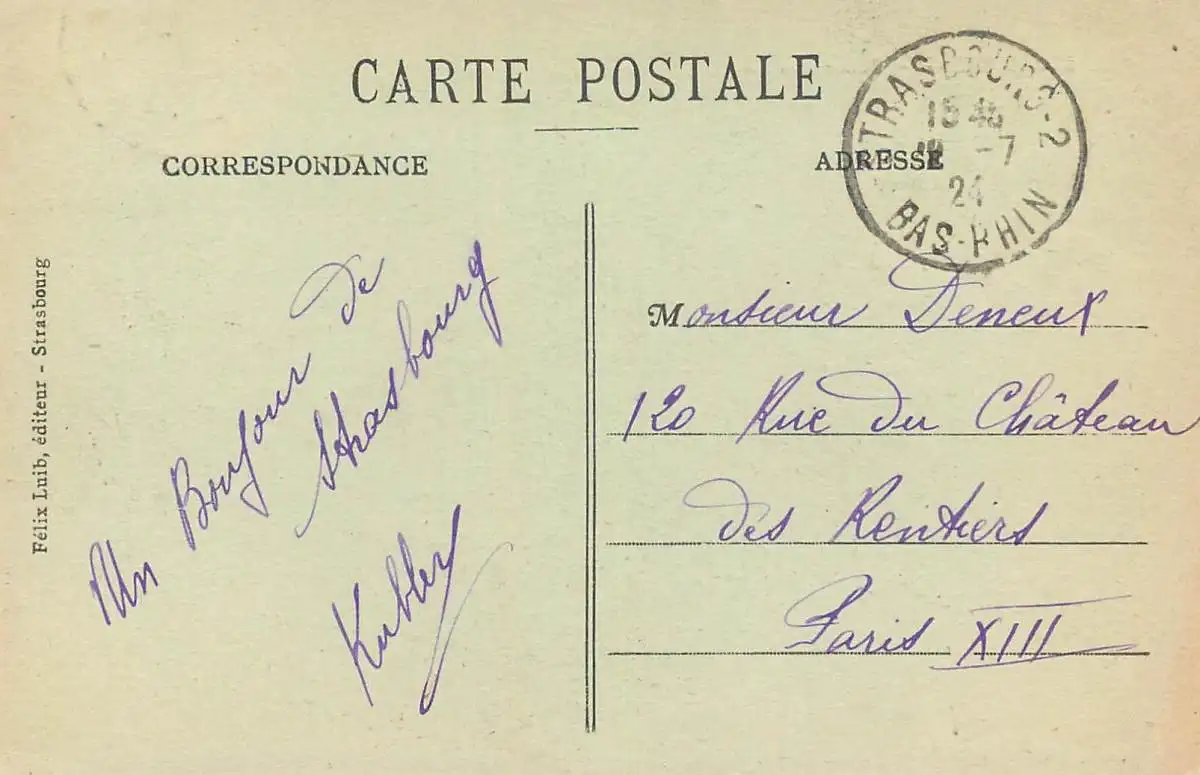 CARTE POSTALE
CORRESPONDANCE
ADRESSE
STRASBOURG-2
-7
24
BAS-RHIN
Félix Luib, éditeur - Strasbourg
Un Bonjour de
Strasbourg
Kubler
Monsieur Deneux
120 Rue du Château
des Rentiers
Paris XIII